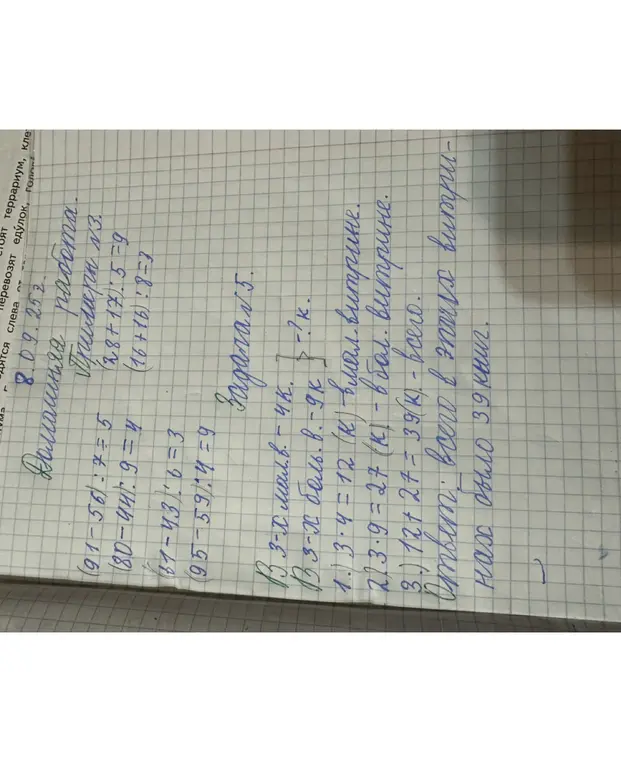 стоят террариум, кле
перевозят еду́лок,
дятся слева от
8.09.25г.
Домашняя работа.
Примеры №3.
(91-56):7=5 (28+17):5=9
(80-44):9=4 (16+16):8=3
(61-43):6=3
(95-59):4=9
Задача №5.
В 3-х мал.в.-4к.
В 3-х больш.в.-9к } -?к.
1.) 3·4=12 (к)-в мал.витрине.
2.) 3·9=27 (к)-в бол. витрине.
3.) 12+27=39(к)-всего.
Ответ: всего в этих витри-
нах было 39 книг.